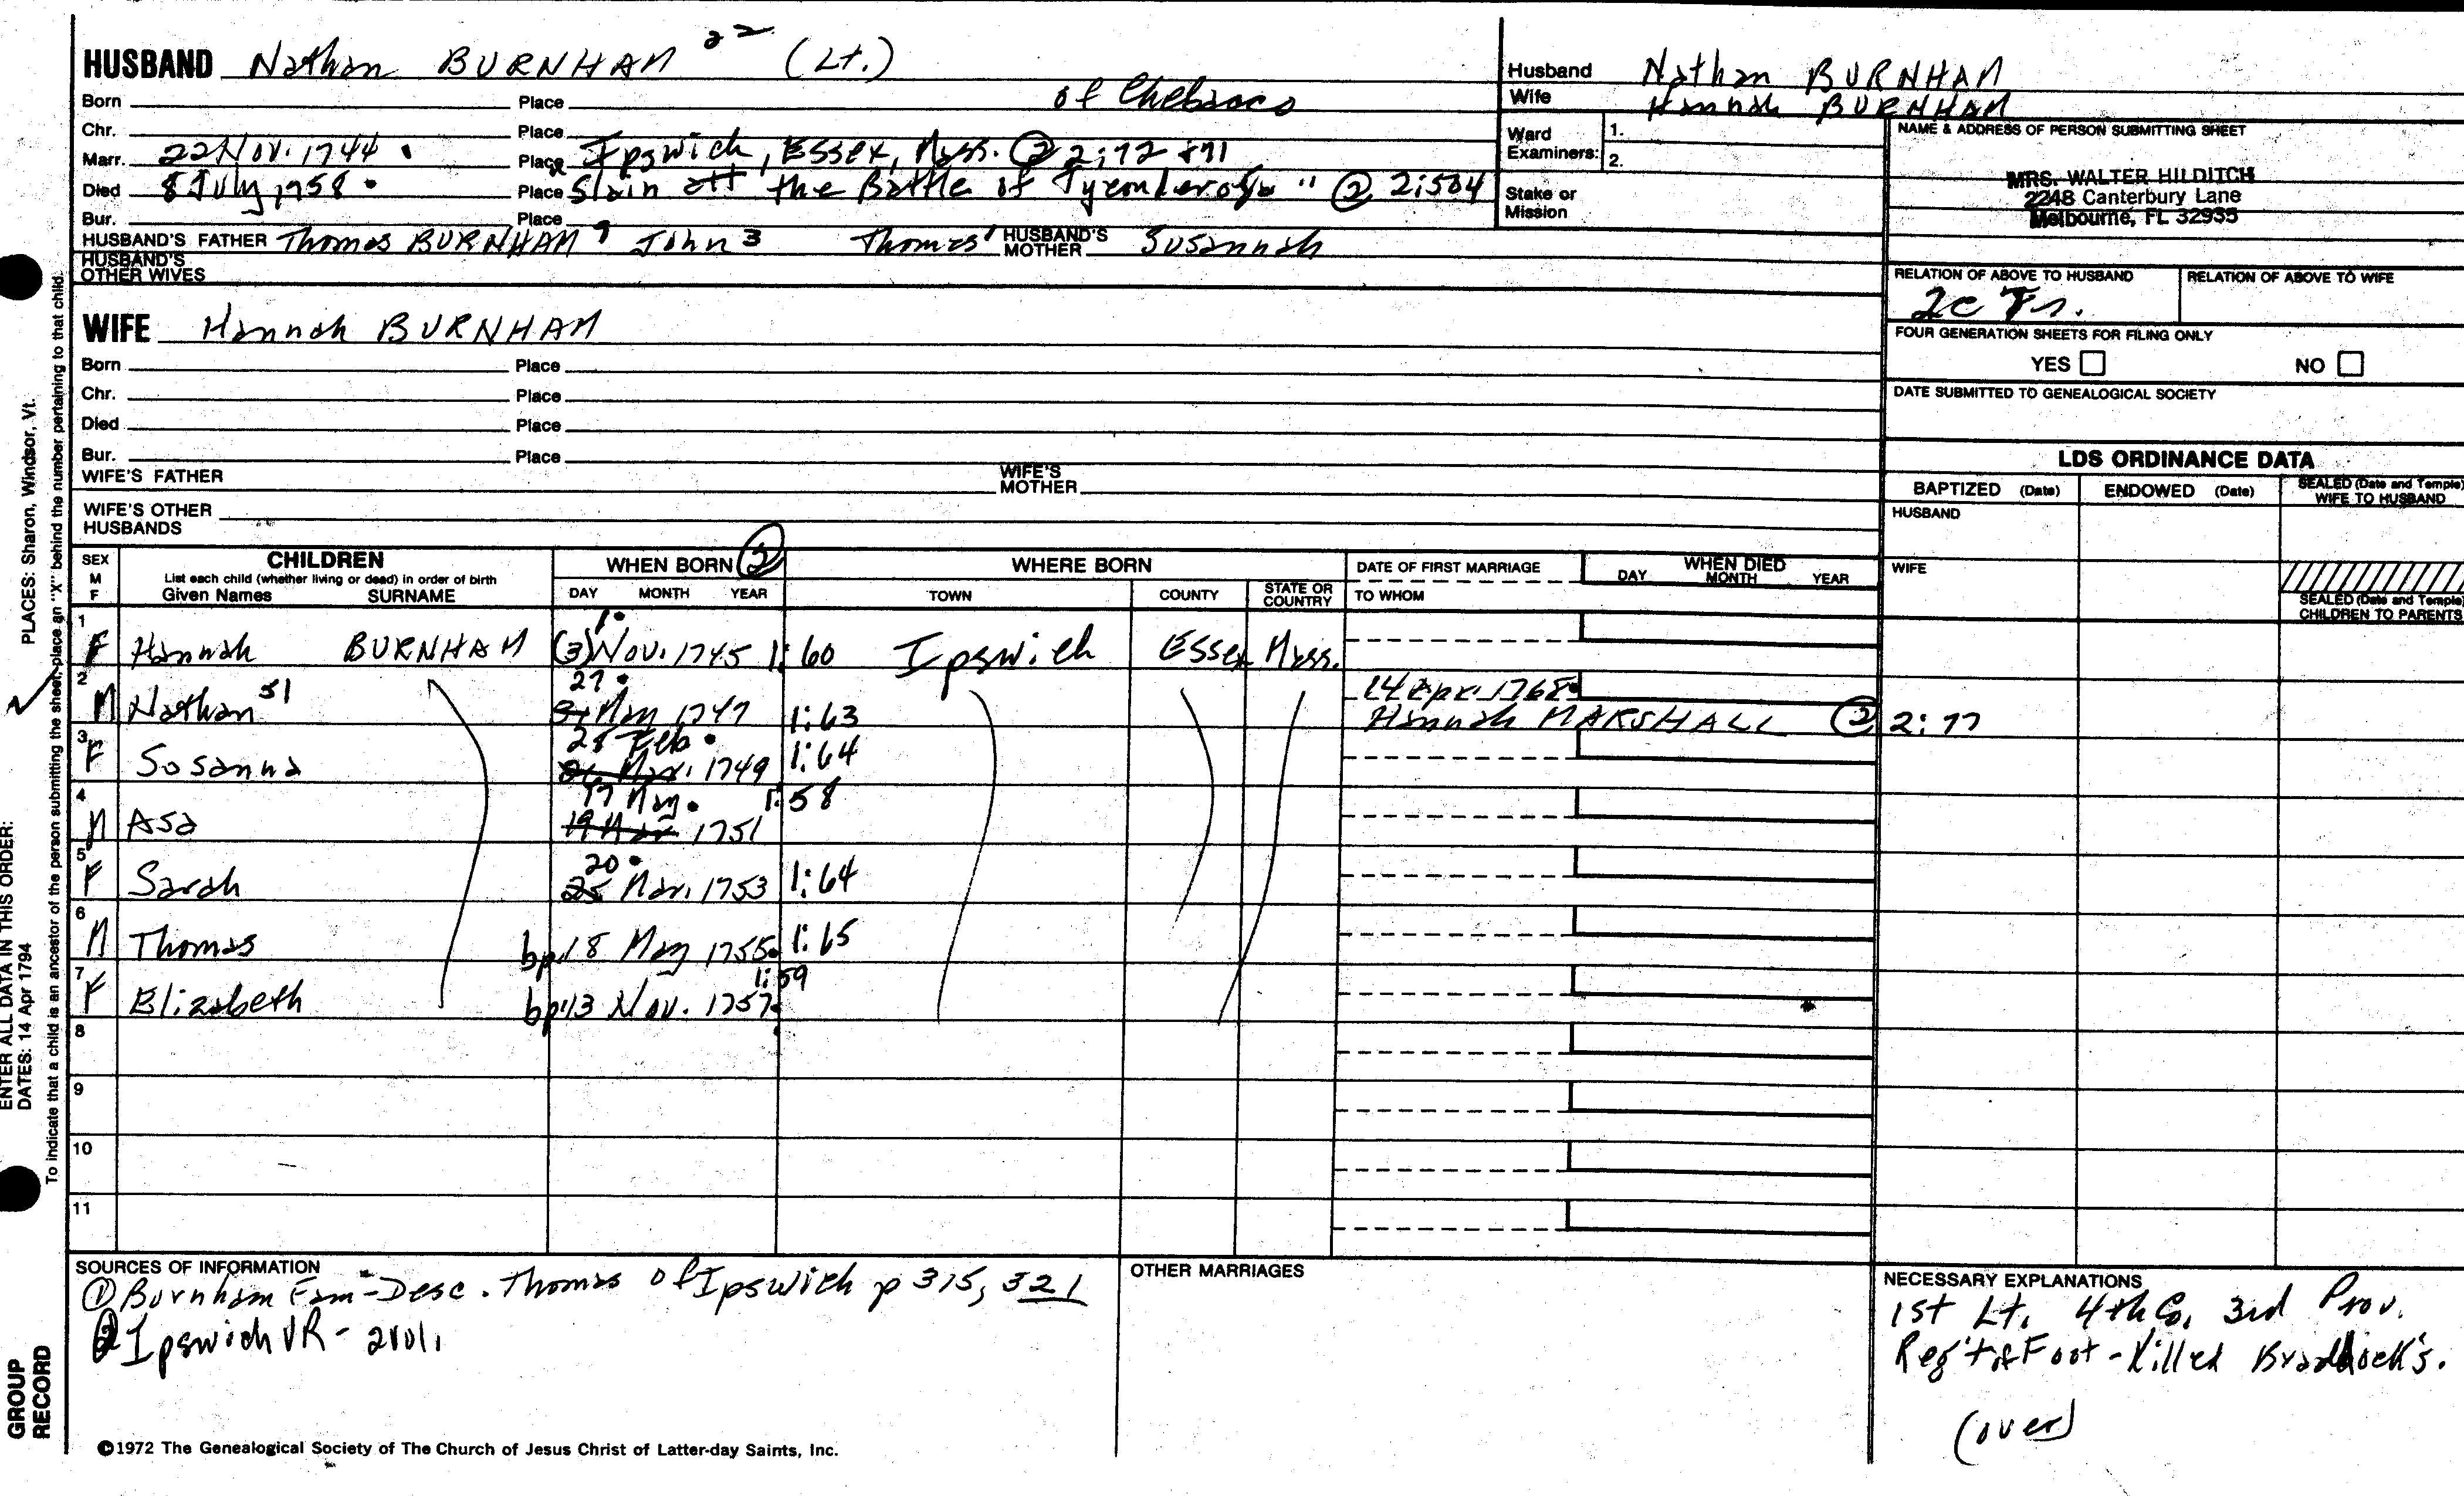 HUSBAND Nathan BURNHAM 22 (Lt.)
Born Place of Chebacco
Chr. Place
Marr. 22 Nov. 1744 Place Ipswich, Essex, Mass. ② 2:72 + 71
Died 8 July 1758 Place Slain att the Battle of Tyconderoga" ② 2:504
Bur. Place
HUSBAND'S FATHER Thomas BURNHAM 9 John 3 Thomas 1 HUSBAND'S MOTHER Susannah
HUSBAND'S OTHER WIVES
WIFE Hannah BURNHAM
Born Place
Chr. Place
Died Place
Bur. Place
WIFE'S FATHER WIFE'S MOTHER
WIFE'S OTHER HUSBANDS
Husband Nathan BURNHAM
Wife Hannah BURNHAM
Ward Examiners: 1.
2.
Stake or Mission
NAME & ADDRESS OF PERSON SUBMITTING SHEET
MRS. WALTER HILDITCH
2248 Canterbury Lane
Melbourne, FL 32935
RELATION OF ABOVE TO HUSBAND RELATION OF ABOVE TO WIFE
FOUR GENERATION SHEETS FOR FILING ONLY
YES NO
DATE SUBMITTED TO GENEALOGICAL SOCIETY
LDS ORDINANCE DATA
BAPTIZED (Date) ENDOWED (Date) SEALED (Date and Temple) WIFE TO HUSBAND
HUSBAND
WIFE
SEALED (Date and Temple) CHILDREN TO PARENTS
SEX M F CHILDREN WHEN BORN ② WHERE BORN DATE OF FIRST MARRIAGE WHEN DIED
List each child (whether living or dead) in order of birth
Given Names SURNAME DAY MONTH YEAR TOWN COUNTY STATE OR COUNTRY TO WHOM DAY MONTH YEAR
1 F Hannah BURNHAM 1 (3) Nov. 1745 1:60 Ipswich Essex Mass.
2 M Nathan 51 27 31 May 1747 1:63 14 Apr. 1768
Hannah MARSHALL ② 2:77
3 F Sosanna 28 Feb. Mar. 1749 1:64
4 M Asa 17 May 19 1751 1:58
5 F Sarah 20 25 Mar. 1753 1:64
6 M Thomas bp 18 May 1755 1:65
7 F Elizabeth bp 13 Nov. 1757 1:59
8
9
10
11
SOURCES OF INFORMATION
① Burnham Fam - Desc. Thomas of Ipswich p 315, 321
② Ipswich VR - 2 vol.
OTHER MARRIAGES
NECESSARY EXPLANATIONS
1st Lt. 4th Co. 3rd Prov.
Reg't of Foot - Killed Braddock's.
(over)
©1972 The Genealogical Society of The Church of Jesus Christ of Latter-day Saints, Inc.
PLACES: Sharon, Windsor, Vt.
To indicate that a child is an ancestor of the person submitting the sheet, place an "X" behind the number pertaining to that child.
ENTER ALL DATA IN THIS ORDER:
DATES: 14 Apr 1794
GROUP RECORD